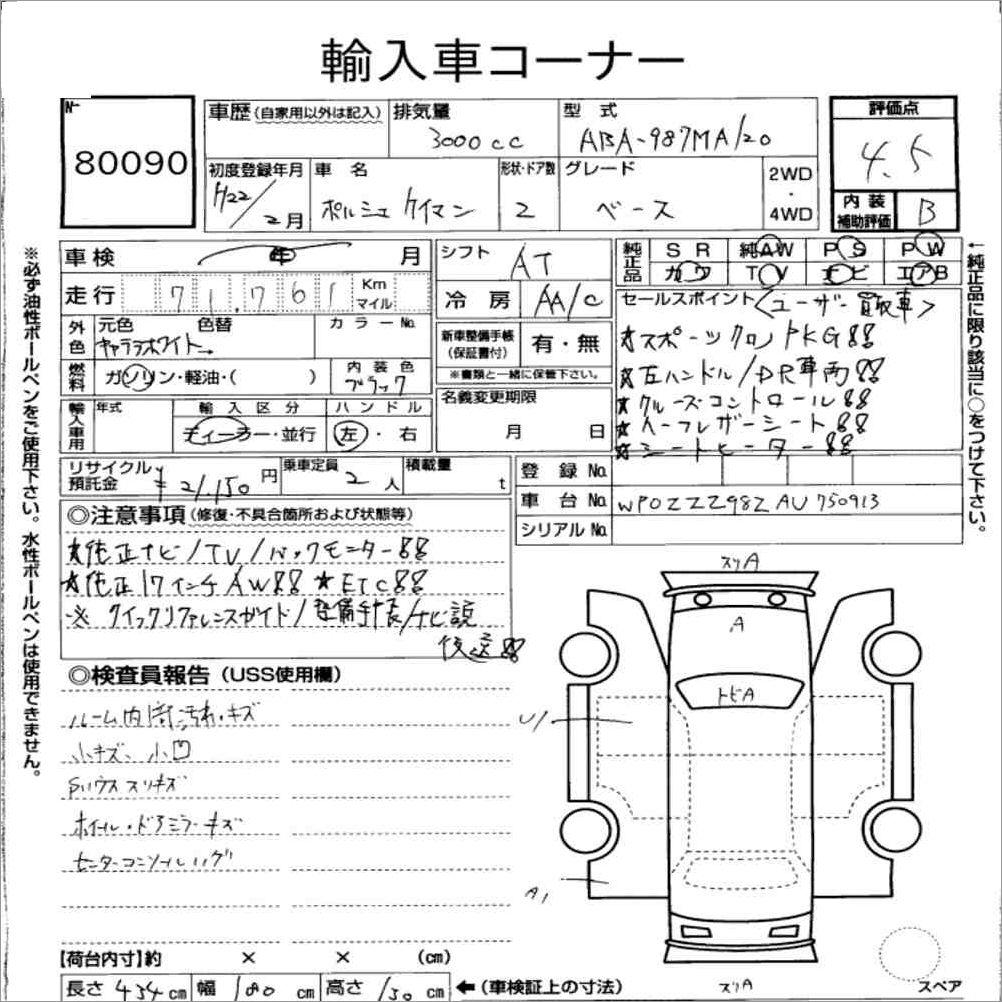 輸入車コーナー
No.
80090
車歴(自家用以外は記入)
排気量
3000cc
型式
ABA-987MA120
評価点
4.5
初度登録年月
H22/2月
車名
ポルシェ ケイマン
形状・ドア数
2
グレード
ベース
2WD
・
4WD
内装
補助評価
B
車検 年 月
走行 71,761 Km
マイル
外色
元色 色替
キャララホワイト
カラーNo.
燃料
ガソリン・軽油・( )
内装色
ブラック
輸入車用
年式
輸入区分
ディーラー・並行
ハンドル
左・右
シフト
AT
冷房
AA/C
新車整備手帳
(保証書付)
有・無
※書類と一緒に保管下さい。
名義変更期限
月 日
純正品
SR 純AW PS PW
ガワ TV ナビ エアB
セールスポイント <ユーザー買取車>
★スポーツクロノPKG!!
★左ハンドル/DR車両!!
★クルーズコントロール!!
★ハーフレザーシート!!
★シートヒーター!!
リサイクル
預託金
¥21,150円
乗車定員
2人
積載量
t
登録No.
車台No.
WP0ZZZ98ZAU750913
シリアルNo.
◎注意事項(修復・不具合箇所および状態等)
★純正ナビ/TV/バックモニター!!
★純正17インチAW!! ★ETC!!
※クイックリファレンスガイド/整備手帳/ナビ説
後送!!
◎検査員報告(USS使用欄)
ルーム内 汚れ・キズ
小キズ、小凹
スリキズ
ホイール・ドアミラーキズ
センターコンソールハゲ
スリA
A
トビA
U1
A1
スリA
【荷台内寸】約 × × (cm)
長さ 434cm 幅 180cm 高さ 130cm ←(車検証上の寸法)
スペア
※必ず油性ボールペンをご使用下さい。水性ボールペンは使用できません。
←純正品に限り該当に○をつけて下さい。